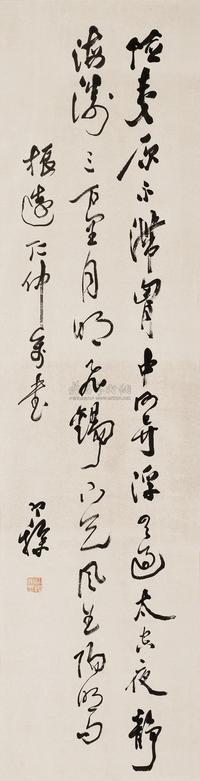 险夷原不滞胸中何异浮云过太空夜静
海涛三万里月明飞锡下天风王阳明句
振远仁仲